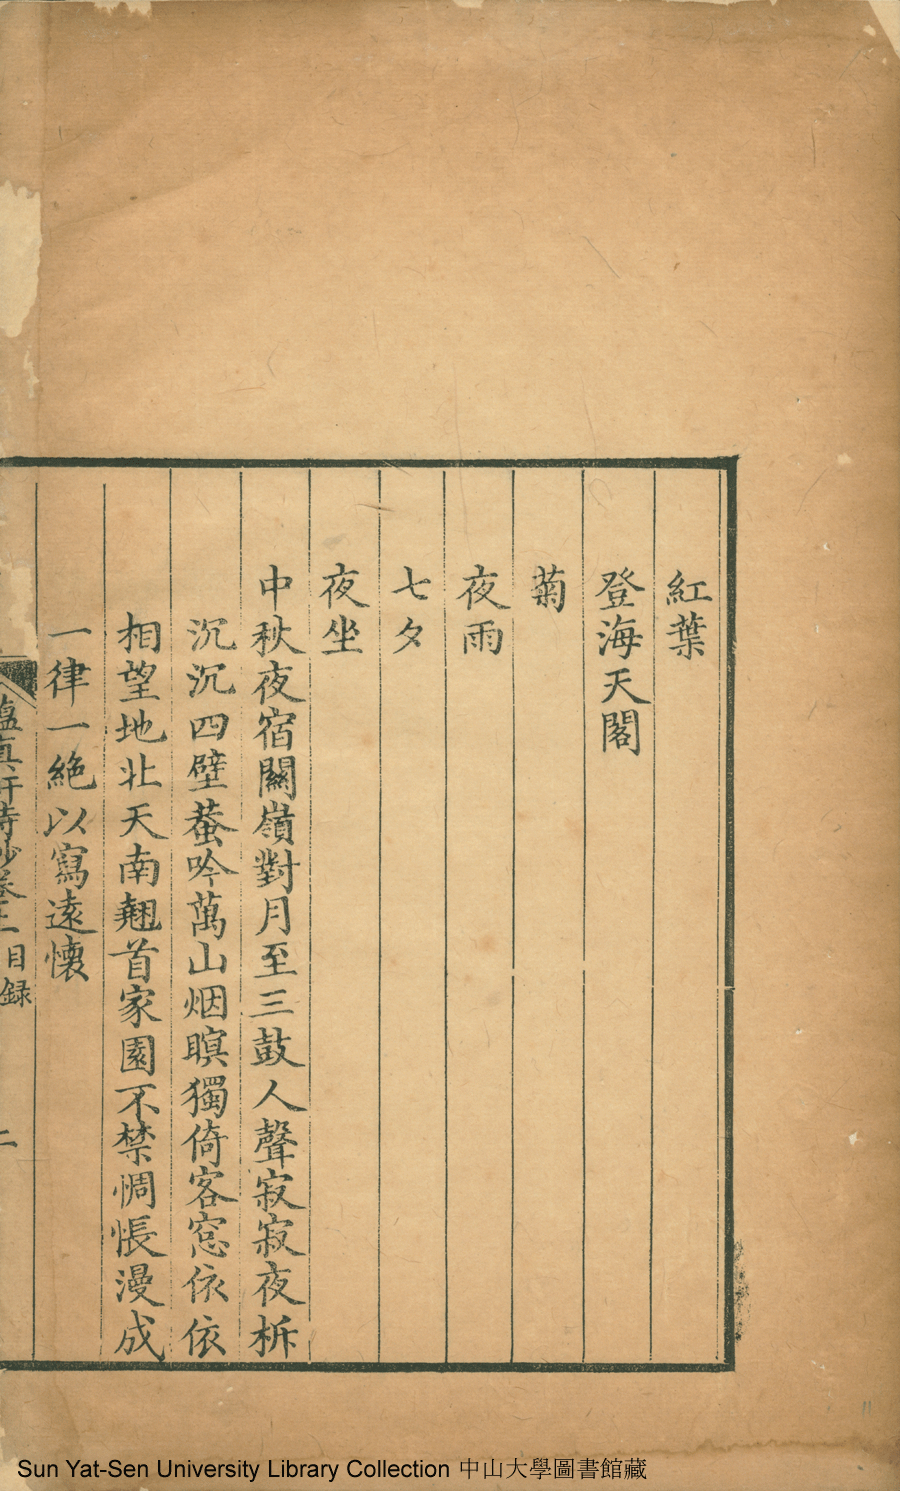 紅葉
登海天閣
菊
夜雨
七夕
夜坐
中秋夜宿關嶺對月至三鼓人聲寂寂夜柝
沉沉四壁蛩吟萬山烟暝獨倚客窓依依
相望地北天南翹首家園不禁惆悵漫成
一律一絶以寫遠懷
蘊真軒詩鈔卷 目録
二
Sun Yat-Sen University Library Collection 中山大學圖書館藏